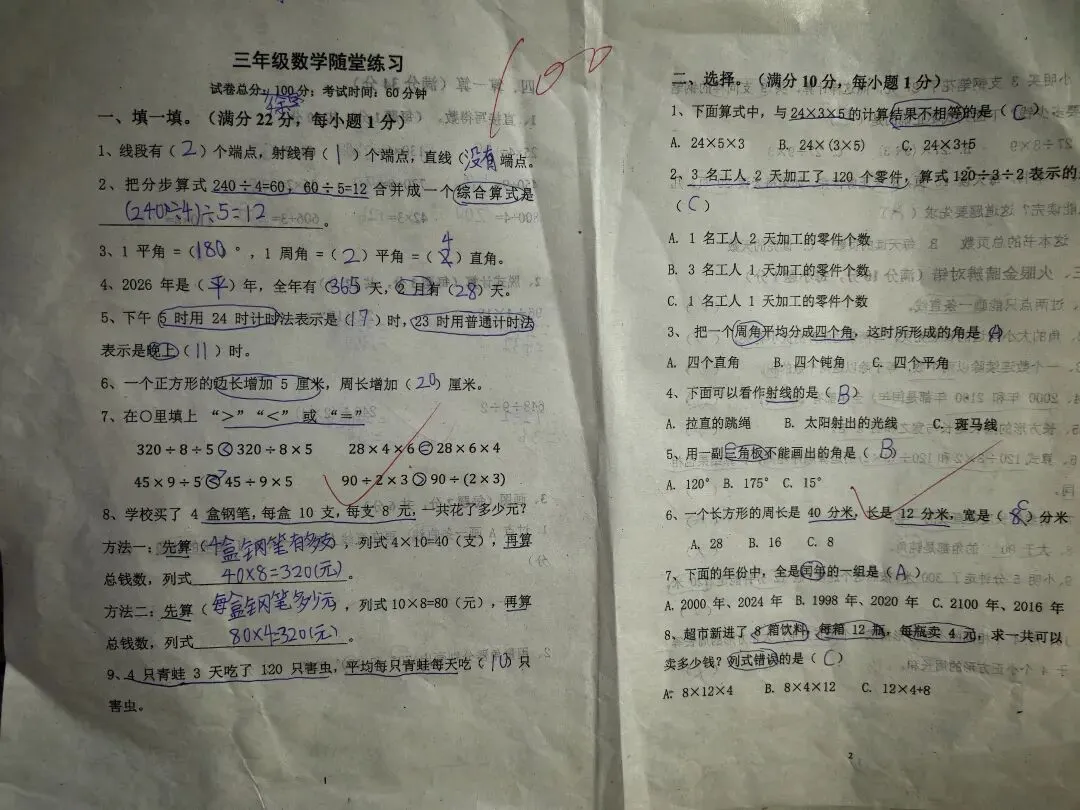 三年级数学随堂练习
100
试卷总分：100分；考试时间：60分钟
一、填一填。（满分22分，每小题1分）
1、线段有（2）个端点，射线有（1）个端点，直线（没有端点。
2、把分步算式 240÷4=60，60÷5=12 合并成一个综合算式是
(240÷4)÷5=12。
3、1平角=（180°，1周角=（2）平角=（4）直角。
4、2026年是（平）年，全年有（365天，2月有（28）天。
5、下午5时用24时计时法表示是（17）时，23时用普通计时法
表示是晚上（11）时。
6、一个正方形的边长增加5厘米，周长增加（20）厘米。
7、在○里填上 “>”“<” 或 “=”
320÷8÷5<320÷8×5 28×4×6=28×6×4
45×9÷5=45÷9×5 90÷2×3>90÷(2×3)
8、学校买了4盒钢笔，每盒10支，每支8元，一共花了多少元？
方法一：先算（4盒钢笔有多少支，列式4×10=40（支），再算
总钱数，列式 40×8=320(元)。
方法二：先算（每盒钢笔多少元，列式10×8=80（元），再算
总钱数，列式 80×4=320(元)。
9、4只青蛙3天吃了120只害虫，平均每只青蛙每天吃（10）只
害虫。
1
二、选择。（满分10分，每小题1分）
1、下面算式中，与24×3×5的计算结果不相等的是（C）
A. 24×5×3 B. 24×(3×5) C. 24×3+5
2、3名工人2天加工了120个零件，算式120÷3÷2表示的
（C）
A. 1名工人2天加工的零件个数
B. 3名工人1天加工的零件个数
C. 1名工人1天加工的零件个数
3、把一个周角平均分成四个角，这时所形成的角是A
A. 四个直角 B. 四个钝角 C. 四个平角
4、下面可以看作射线的是（B）
A. 拉直的跳绳 B. 太阳射出的光线 C. 斑马线
5、用一副三角板不能画出的角是（B）
A. 120° B. 175° C. 15°
6、一个长方形的周长是40分米，长是12分米，宽是（C）分米
A. 28 B. 16 C. 8
7、下面的年份中，全是闰年的一组是（A）
A. 2000年、2024年 B. 1998年、2020年 C. 2100年、2016年
8、超市新进了8箱饮料，每箱12瓶，每瓶卖4元，求一共可以
卖多少钱？列式错误的是（C）
A. 8×12×4 B. 8×4×12 C. 12×4+8
2